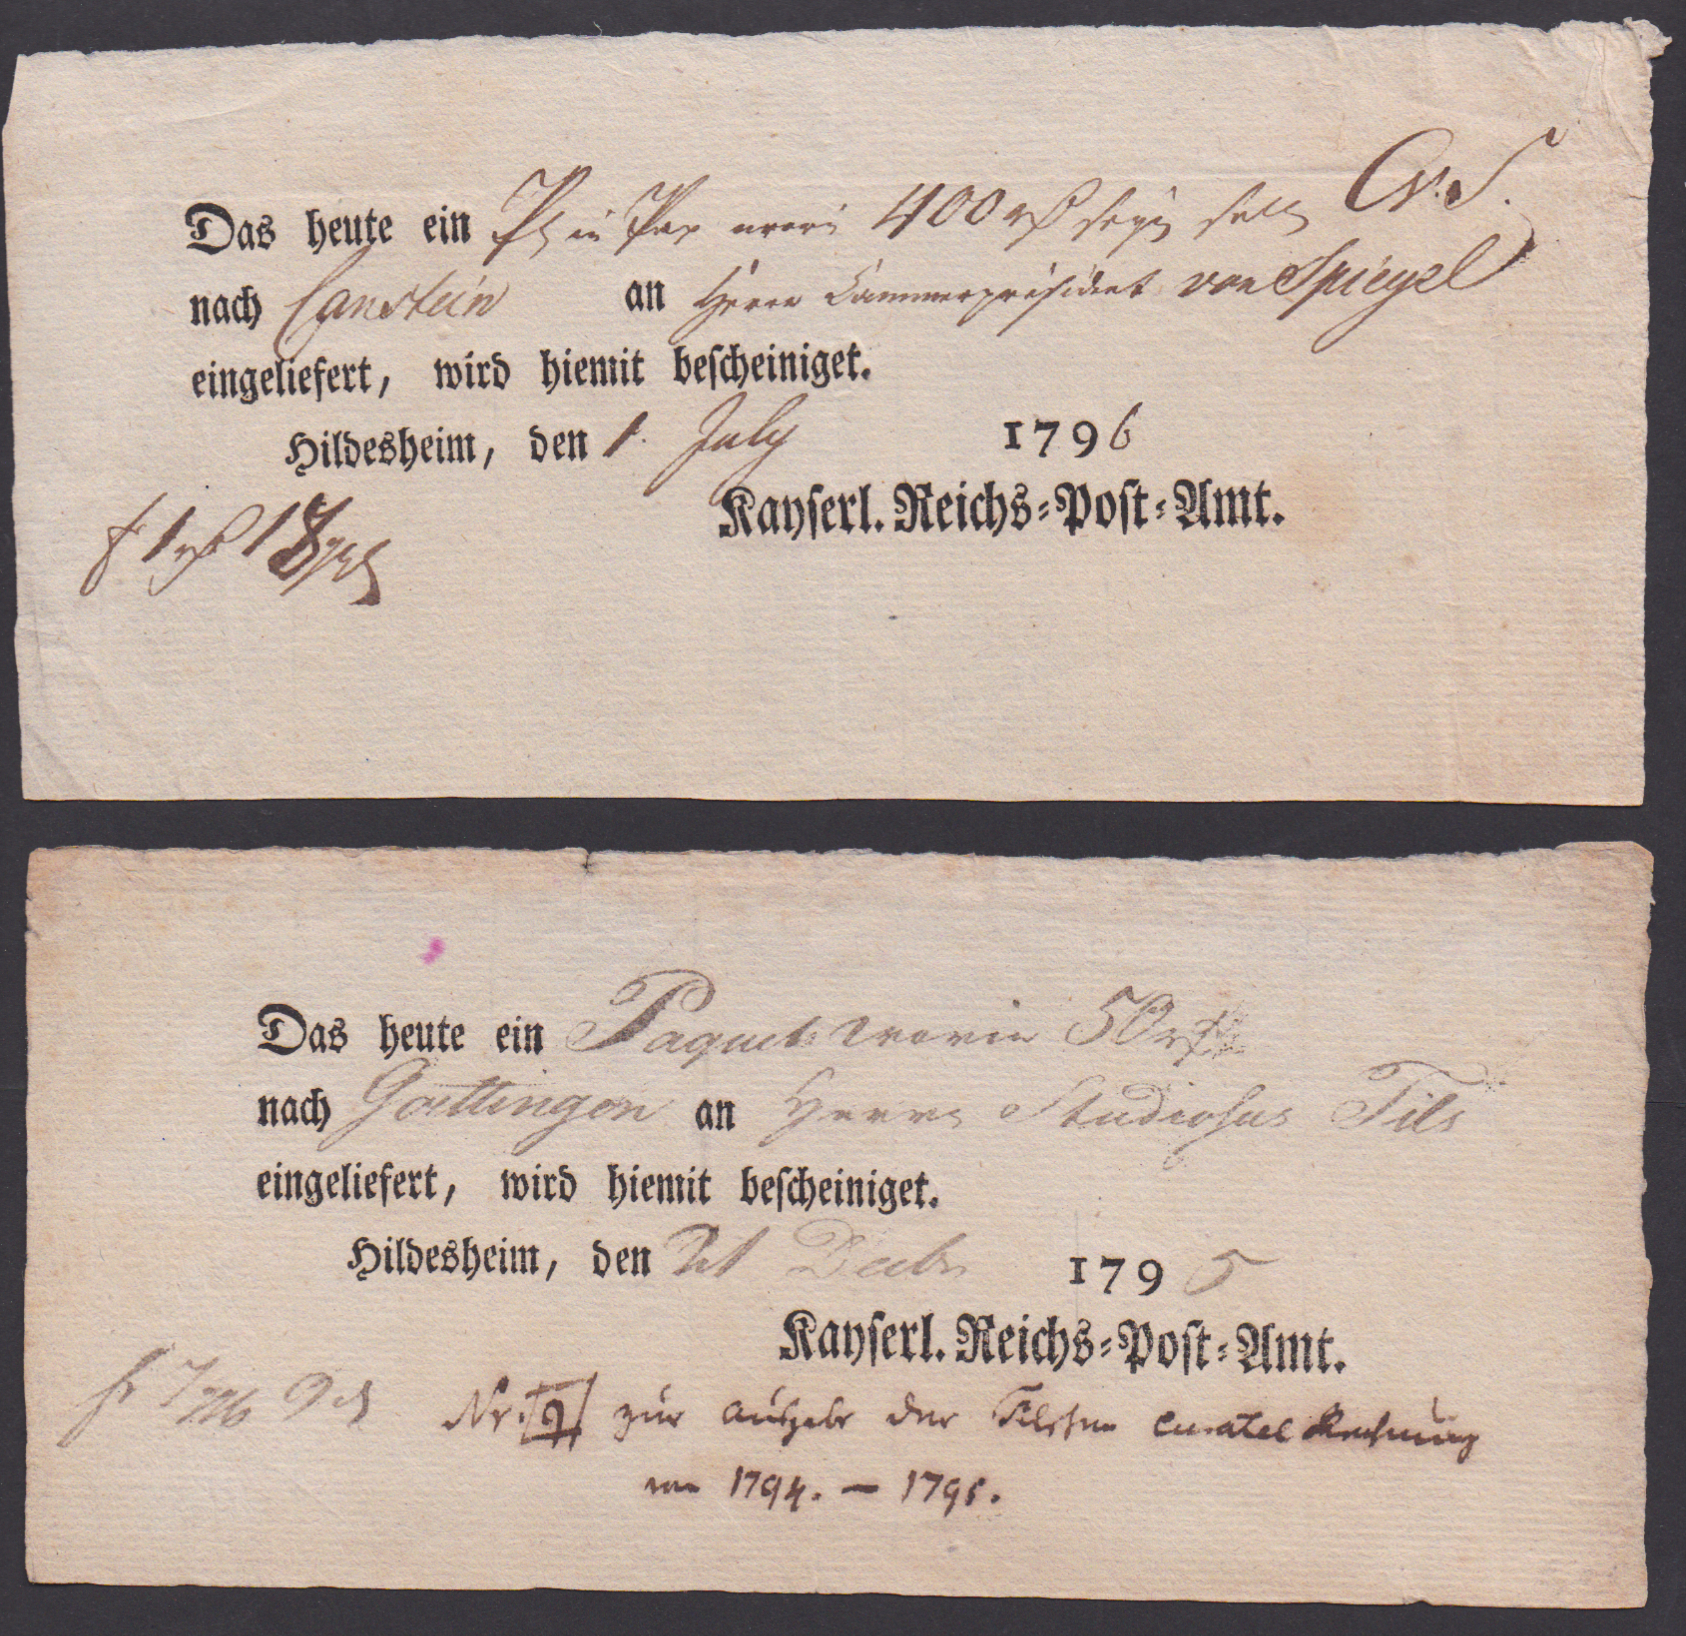 Das heute ein in 400 C.v.S.
nach Canstein an Herrn Cammerpräsident von Spiegel
eingeliefert, wird hiemit bescheiniget.
Hildesheim, den 1. July 1796
Kayserl. Reichs-Post-Amt.
Das heute ein Paquet worin 50
nach Goettingen an Herrn Studiosus Tils
eingeliefert, wird hiemit bescheiniget.
Hildesheim, den 21 Decbr 1795
Kayserl. Reichs-Post-Amt.
Nr. 9 zur Ausgabe der curatel Rechnung
von 1794. – 1795.